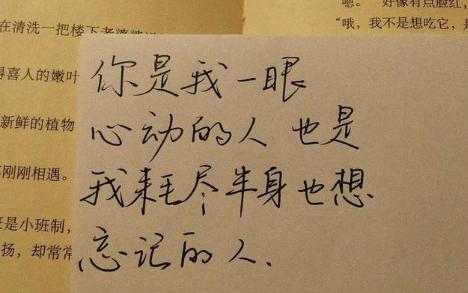 在清洗一把楼下老婆婆
得喜人的嫩叶
新鲜的植物
刚刚相遇。
是小班制，
扬，却常常
嗯。”好像有点脸红，
“哦，我不是想吃它，是
你是我一眼
心动的人 也是
我耗尽半身也想
忘记的人.